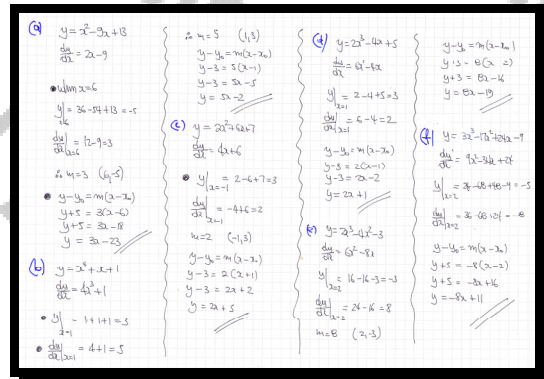 (a) y = x² - 9x + 13
dy/dx = 2x - 9
• When x = 6
y|x=6 = 36 - 54 + 13 = -5
dy/dx|x=6 = 12 - 9 = 3
∴ m = 3 (6, -5)
• y - y₀ = m(x - x₀)
y + 5 = 3(x - 6)
y + 5 = 3x - 18
y = 3x - 23
(b) y = x⁴ + x + 1
dy/dx = 4x³ + 1
• y|x=1 = 1 + 1 + 1 = 3
• dy/dx|x=1 = 4 + 1 = 5
∴ m = 5 (1, 3)
y - y₀ = m(x - x₀)
y - 3 = 5(x - 1)
y - 3 = 5x - 5
y = 5x - 2
(c) y = 2x² + 6x + 7
dy/dx = 4x + 6
• y|x=-1 = 2 - 6 + 7 = 3
dy/dx|x=-1 = -4 + 6 = 2
m = 2 (-1, 3)
y - y₀ = m(x - x₀)
y - 3 = 2(x + 1)
y - 3 = 2x + 2
y = 2x + 5
(d) y = 2x³ - 4x + 5
dy/dx = 6x² - 4
y|x=1 = 2 - 4 + 5 = 3
dy/dx|x=1 = 6 - 4 = 2
y - y₀ = m(x - x₀)
y - 3 = 2(x - 1)
y - 3 = 2x - 2
y = 2x + 1
(e) y = 2x³ - 4x² - 3
dy/dx = 6x² - 8x
y|x=2 = 16 - 16 - 3 = -3
dy/dx|x=2 = 24 - 16 = 8
m = 8 (2, -3)
y - y₀ = m(x - x₀)
y + 3 = 8(x - 2)
y + 3 = 8x - 16
y = 8x - 19
(f) y = 3x³ - 17x² + 24x - 9
dy/dx = 9x² - 34x + 24
y|x=2 = 24 - 68 + 48 - 9 = -5
dy/dx|x=2 = 36 - 68 + 24 = -8
y - y₀ = m(x - x₀)
y + 5 = -8(x - 2)
y + 5 = -8x + 16
y = -8x + 11